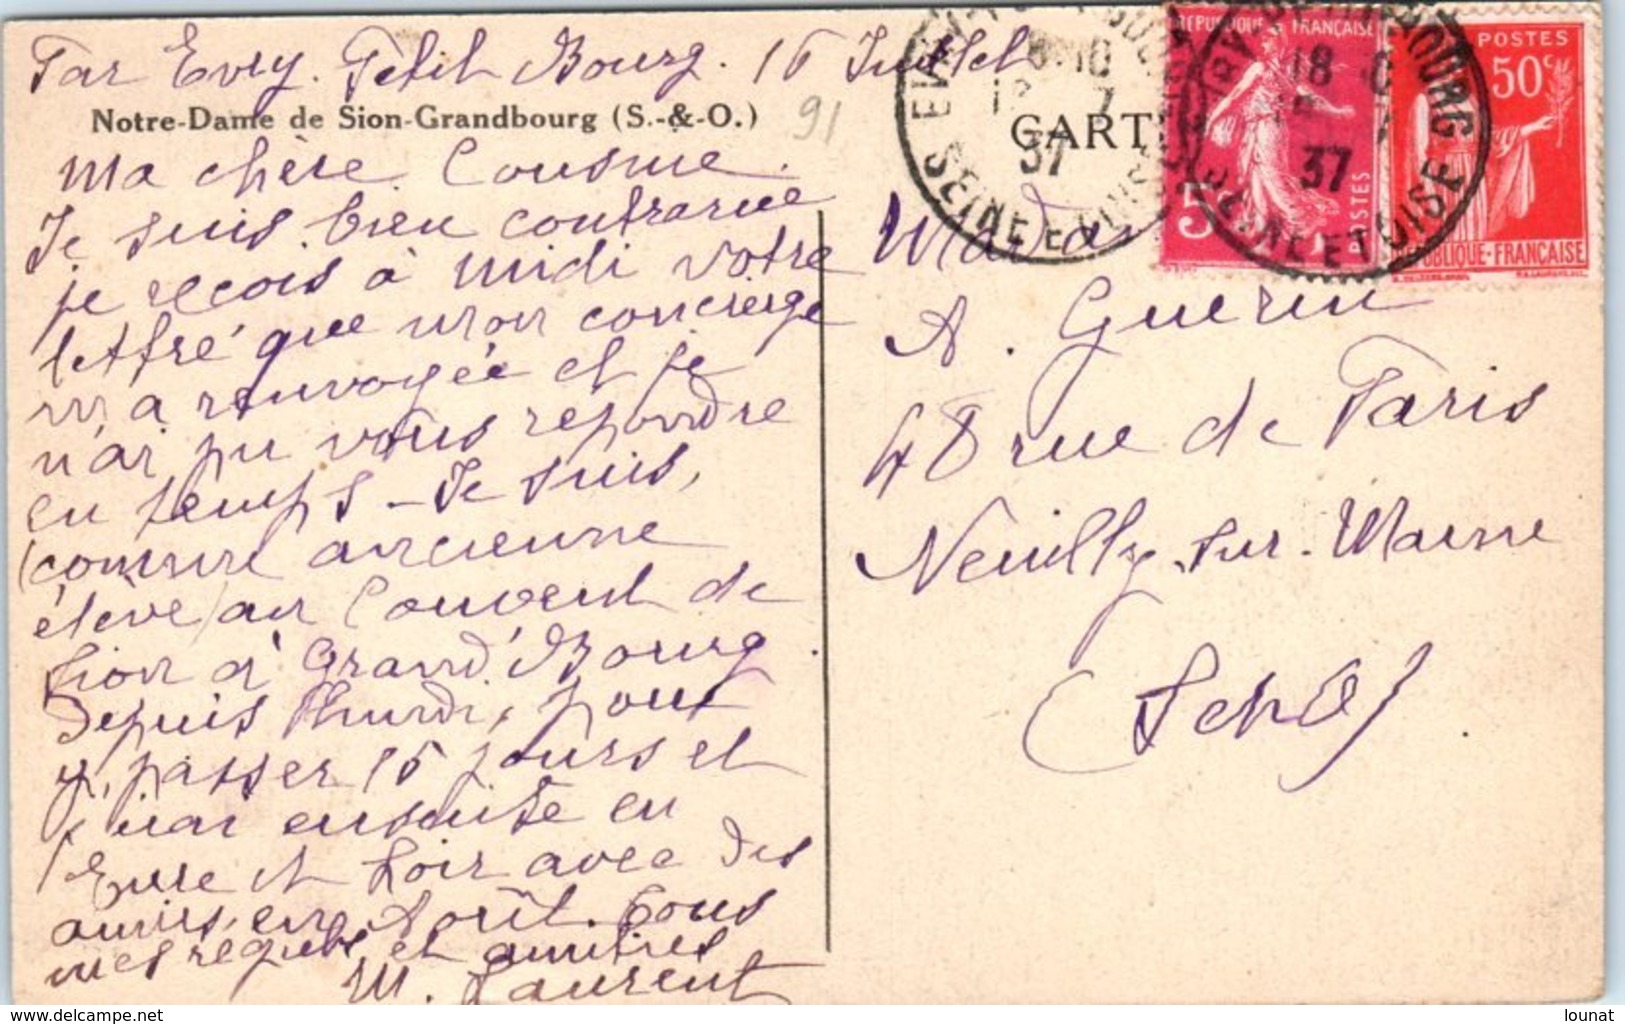 Par Evry. Petit Bourg. 16 Juillet
Notre-Dame de Sion-Grandbourg (S.-&-O.)
91
CART
ma chère Cousine.
Je suis bien contrariée
je reçois à midi votre
lettre que mon concierge
m'a renvoyée et je
n'ai pu vous repondre
en temps - Je suis,
(comme ancienne
élève) au Couvent de
Sion à Grand'Bourg.
depuis Mardi, pour
y passer 15 jours et
j'irai ensuite en
Eure et Loir avec des
amies, en Août. Tous
mes regrets et amitiés
M. Laurent
Madame
A. Guerin
48 rue de Paris
Neuilly-sur-Marne
(S et O)
REPUBLIQUE FRANÇAISE
POSTES
POSTES
50c
RÉPUBLIQUE-FRANÇAISE
SEINE ET OISE
37
SEINE ET OISE
18
37
delcampe.net
lounat